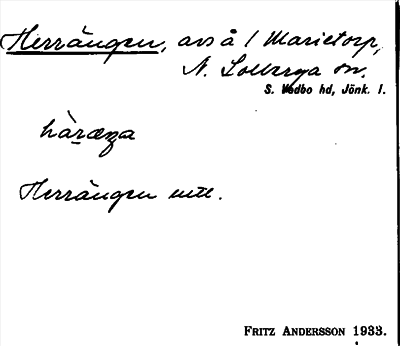 Herrängen, avs å 1 Marietorp,
N. Solberga sn.
S. Vedbo hd, Jönk. l.
hàræŋa
Herrängen uttl.
FRITZ ANDERSSON 1933.